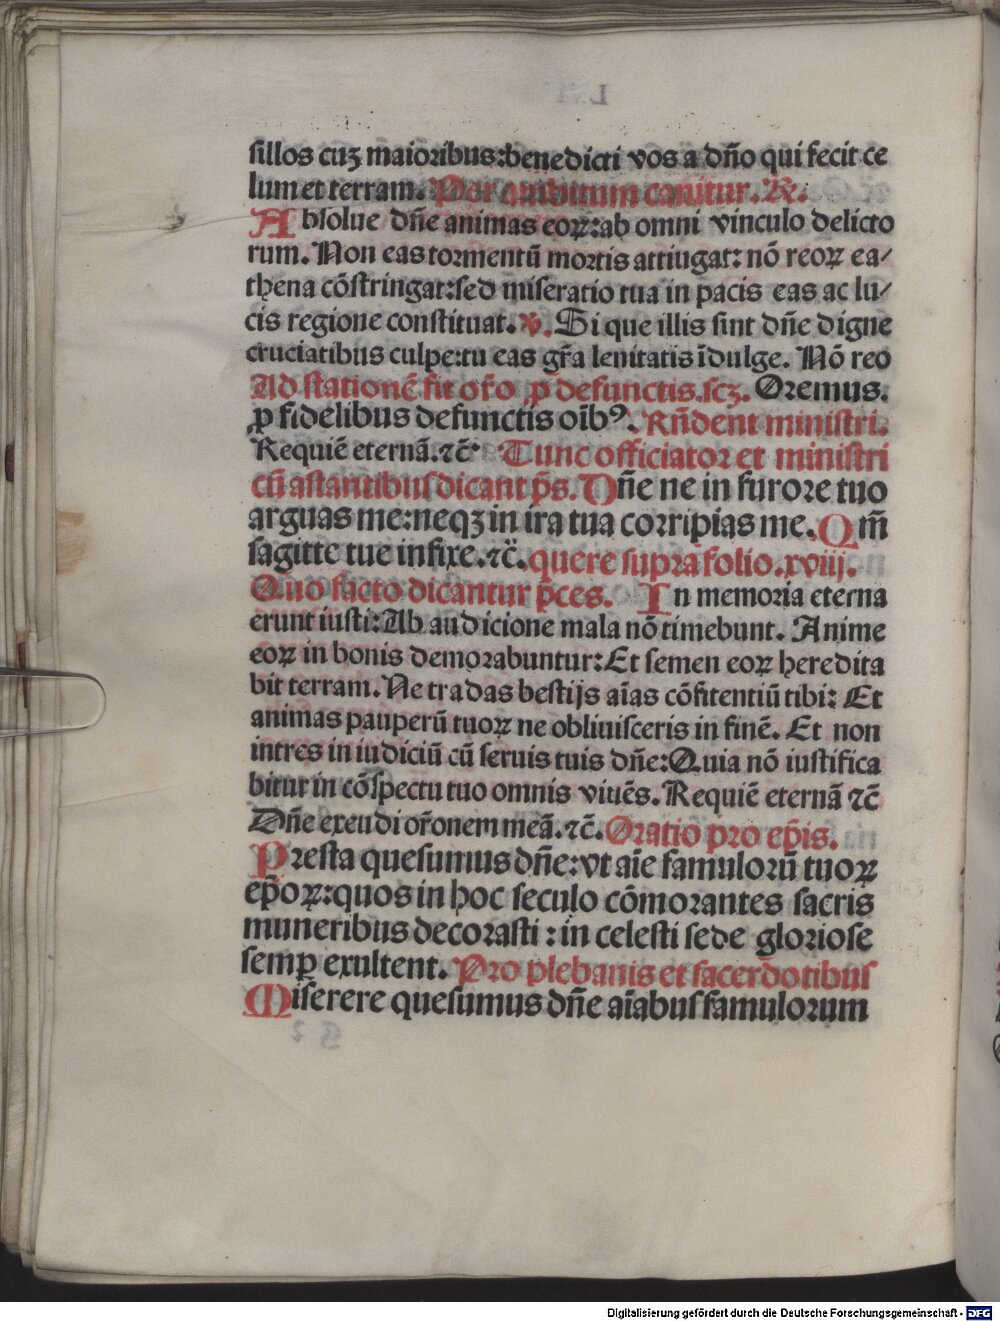 sillos cuꝫ maioribus:benedicti vos a dño qui fecit ce
lum et terram. Per ambitum cañitur. ℞.
Absolue dñe animas eoꝝ:ab omni vinculo delicto
rum. Non eas tormentũ mortis attingat: nõ reoꝝ ca⸗
thena cõstringat:sed miseratio tua in pacis eas ac lu⸗
cis regione constituat. ℣. Si que illis sint dñe digne
cruciatibus culpe:tu eas gr̃a lenitatis ĩdulge. Nõ reo
Ad stationẽ fit or̃o ꝓ defunctis.scꝫ. Oremus.
ꝓ fidelibus defunctis oĩbꝰ. Rñdent ministri.
Requiẽ eternã.⁊c̃ Tunc officiator et ministri
cũ astantibus dicant p̃s. Dñe ne in furore tuo
arguas me:neqꝫ in ira tua corripias me. Qm̃
sagitte tue infixe.⁊c̃. quere supra folio.xviij.
Quo facto dicantur p̃ces. In memoria eterna
erunt iusti: Ab audicione mala nõ timebunt. Anime
eoꝝ in bonis demorabuntur: Et semen eoꝝ heredita
bit terram. Ne tradas bestijs aĩas cõfitentiũ tibi: Et
animas pauperũ tuoꝝ ne obliuisceris in finẽ. Et non
intres in iudiciũ cũ seruis tuis dñe: Quia nõ iustifica
bitur in cõspectu tuo omnis viuẽs. Requiẽ eternã ⁊c̃
Dñe exeudi or̃onem meã.⁊c̃. Oratio pro ep̃is.
Presta quesumus dñe: vt aĩe famulorũ tuoꝝ
ep̃oꝝ:quos in hoc seculo cõmorantes sacris
muneribus decorasti : in celesti sede gloriose
semꝑ exultent. Pro plebanis et sacerdotibus
Miserere quesumus dñe aĩabus famulorum
Digitalisierung gefördert durch die Deutsche Forschungsgemeinschaft - DFG